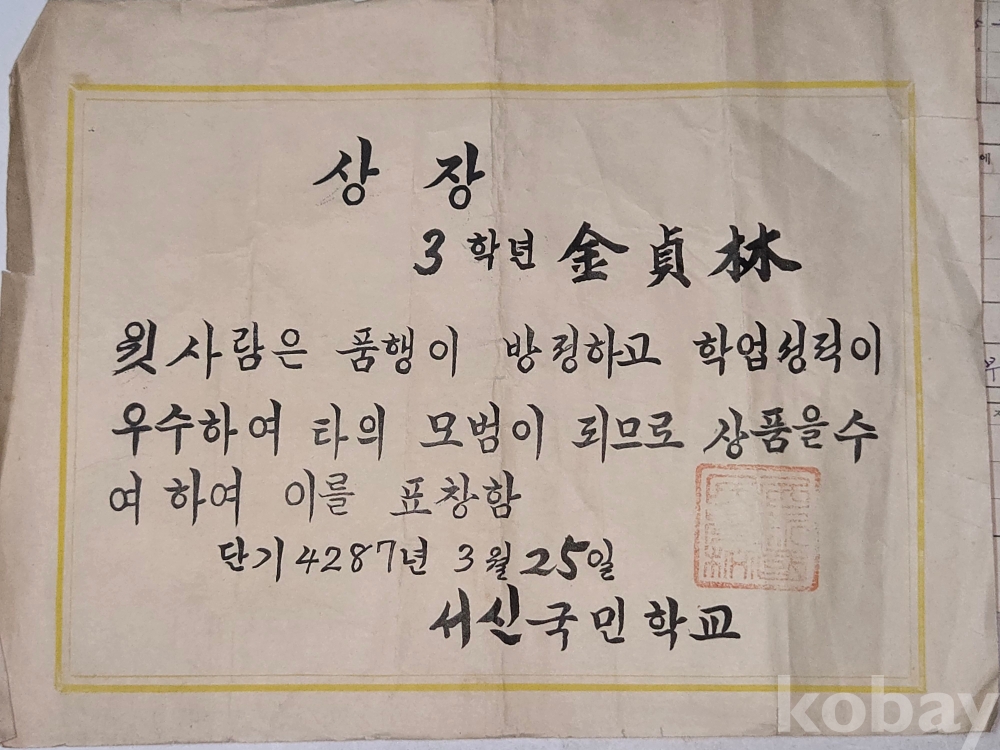 상장
3학년 金貞林
윗사람은 품행이 방정하고 학업성적이
우수하여 타의 모범이 되므로 상품을수
여하여 이를 표창함
단기4287년 3월25일
서신국민학교
kobay